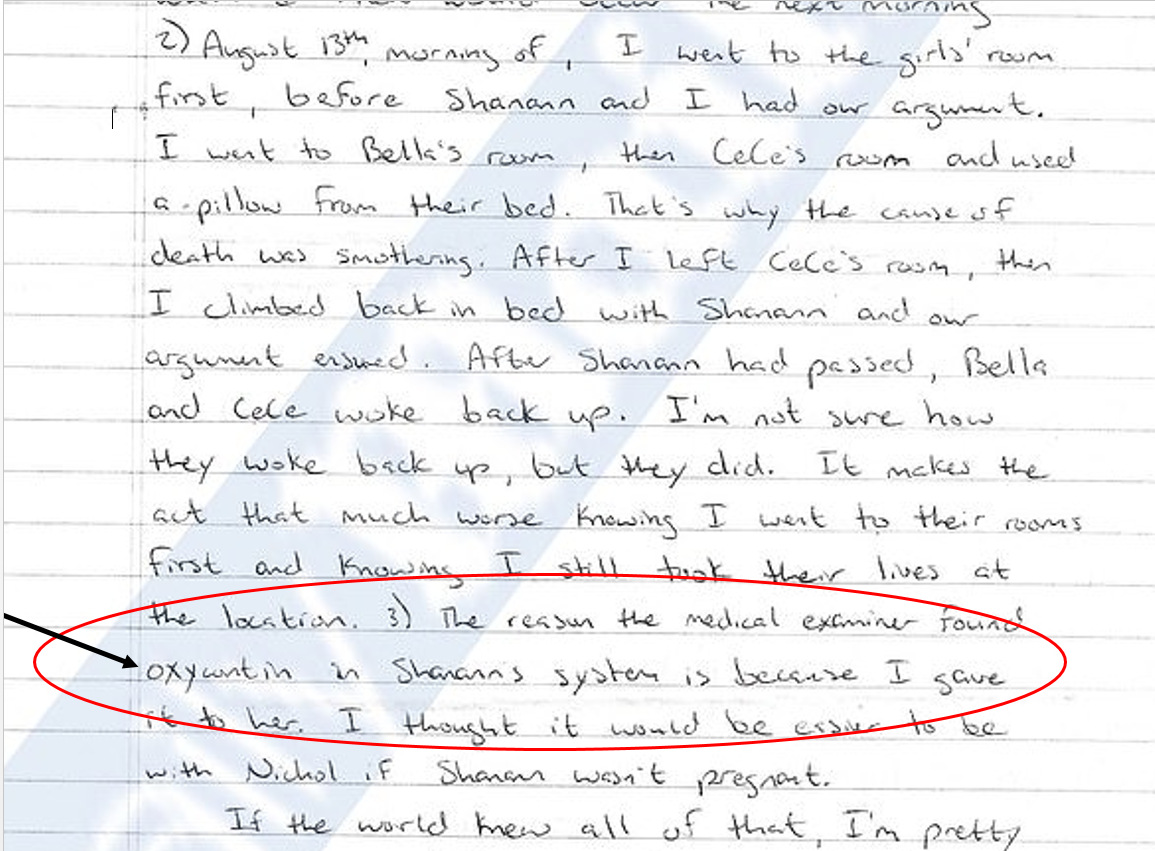 the next morning
2) August 13th, morning of, I went to the girls' room
first, before Shanann and I had our argument.
I went to Bella's room, then CeCe's room and used
a pillow from their bed. That's why the cause of
death was smothering. After I left CeCe's room, then
I climbed back in bed with Shanann and our
argument ensued. After Shanann had passed, Bella
and CeCe woke back up. I'm not sure how
they woke back up, but they did. It makes the
act that much worse knowing I went to their rooms
first and knowing I still took their lives at
the location. 3) The reason the medical examiner found
oxycontin in Shanann's system is because I gave
it to her. I thought it would be easier to be
with Nichol if Shanann wasn't pregnant.
If the world knew all of that, I'm pretty